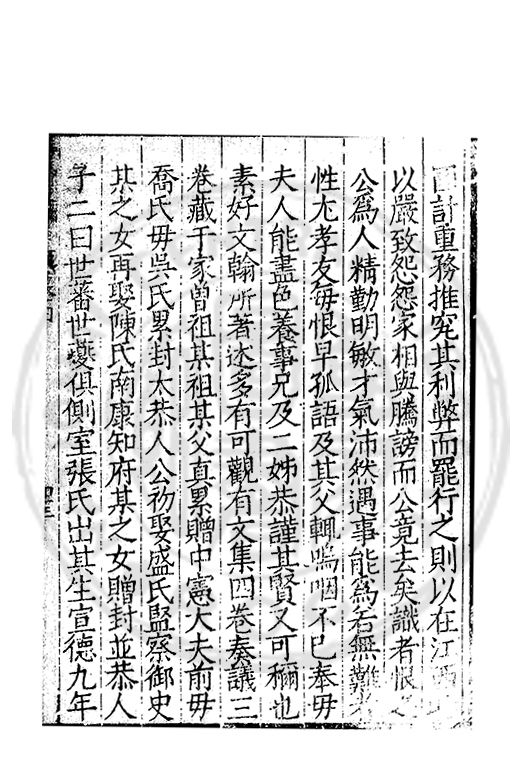 國計重務推究其利弊而罷行之則以在江西
以嚴致怨怨家相與騰謗而公竟去矣識者恨之
公為人精勤明敏才氣沛然遇事能為若無難者
性尤孝友每恨早孤語及其父輒嗚咽不已奉毋
夫人能盡色養事兄及二姊恭謹其賢又可稱也
素好文翰所著述多有可觀有文集四卷奏議三
卷藏于家曽祖某祖某父真累贈中憲大夫前毋
喬氏毋吳氏累封太恭人公初娶盛氏監察御史
某之女再娶陳氏南康知府某之女贈封並恭人
子二曰世蕃世燮俱側室張氏出其生宣德九年
四三